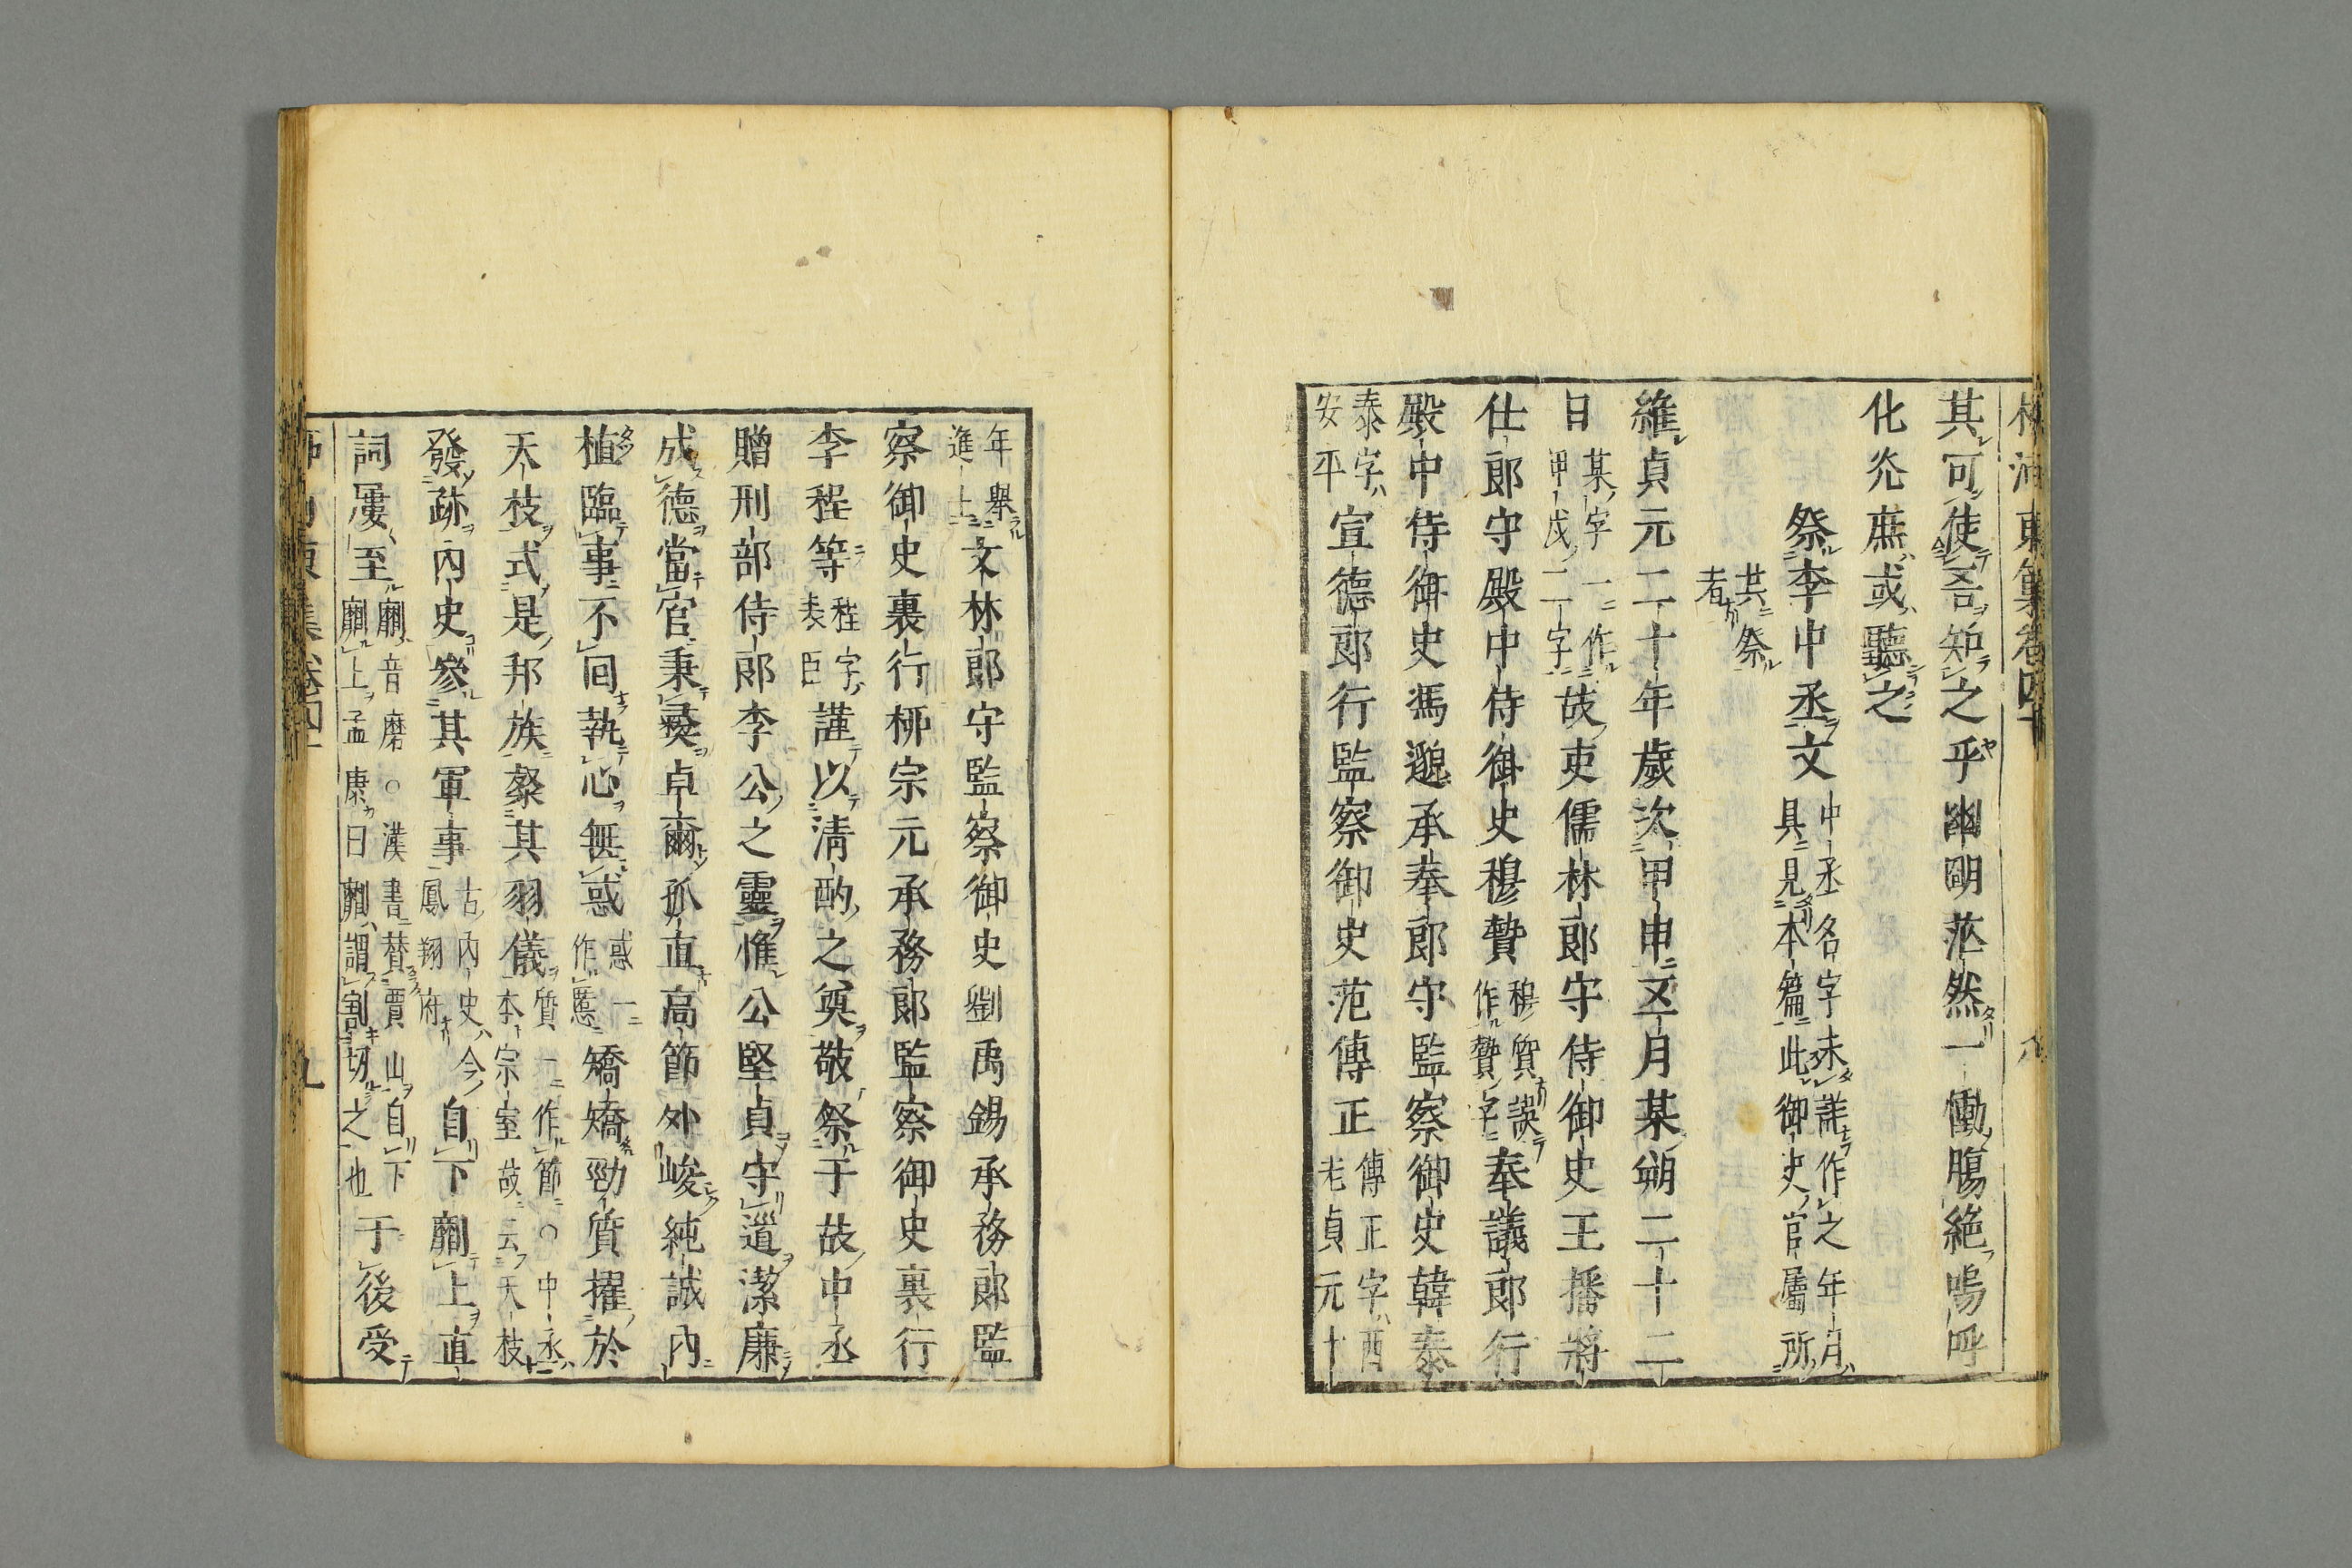 其可使吾知之乎幽明茫然一慟腸絶嗚呼
化光庶或聽之
祭李中丞文
中丞名字未詳作之年月
具見本篇此御史官屬所
共祭
者
維貞元二十年歲次甲申五月某朔二十二
日
某字一作
甲戌二字
故吏儒林郎守侍御史王播將
仕郎守殿中侍御史穆贄
穆質誤
作贄字
奉議郎行
殿中侍御史馮邈承奉郎守監察御史韓泰
泰字
安平
宣德郎行監察御史范傳正
傳正字西
老貞元十
年舉
進士
文林郎守監察御史劉禹錫承務郎監
察御史裏行柳宗元承務郎監察御史裏行
李程等
程字
表臣
謹以淸酌之奠敬祭于故中丞
贈刑部侍郎李公之靈惟公堅貞守道潔廉
成德當官秉彝卓爾孤直高節外峻純誠内
植臨事不回執心無惑
惑一
作慝
矯矯勁質擢於
天枝式是邦族粲其羽儀
質一作節〇中丞
本宗室故云天枝
發跡内史參其軍事
古内史今
鳳翔府
自下劘上直
詞屢至
劘音磨〇漢書賛賈山自下
劘上孟康曰劘謂割切之也
于後受